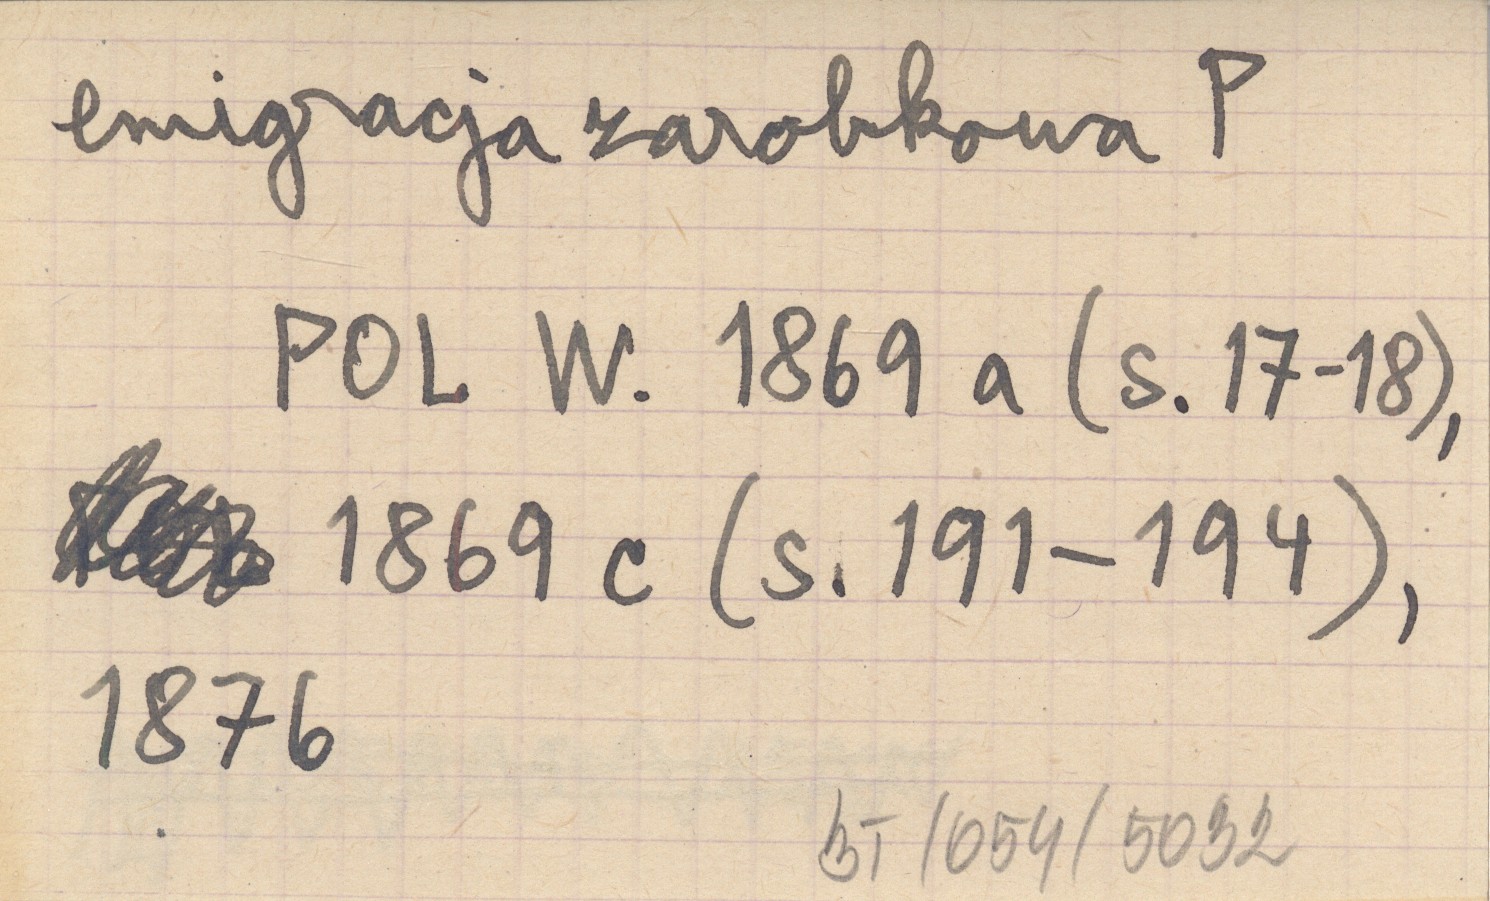 emigracja zarobkowa P
POL W. 1869 a (s. 17-18),
1869 c (s. 191-194),
1876
BT/054/5032